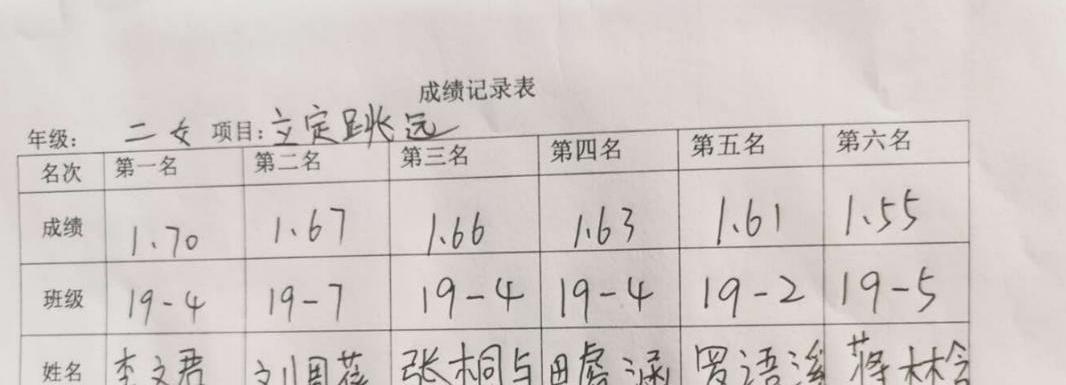 成绩记录表
年级: 二女 项目: 立定跳远
名次 第一名 第二名 第三名 第四名 第五名 第六名
成绩 1.70 1.67 1.66 1.63 1.61 1.55
班级 19-4 19-7 19-4 19-4 19-2 19-5
姓名 李文君 刘周 张桐与 田睿涵 罗语 蒋林